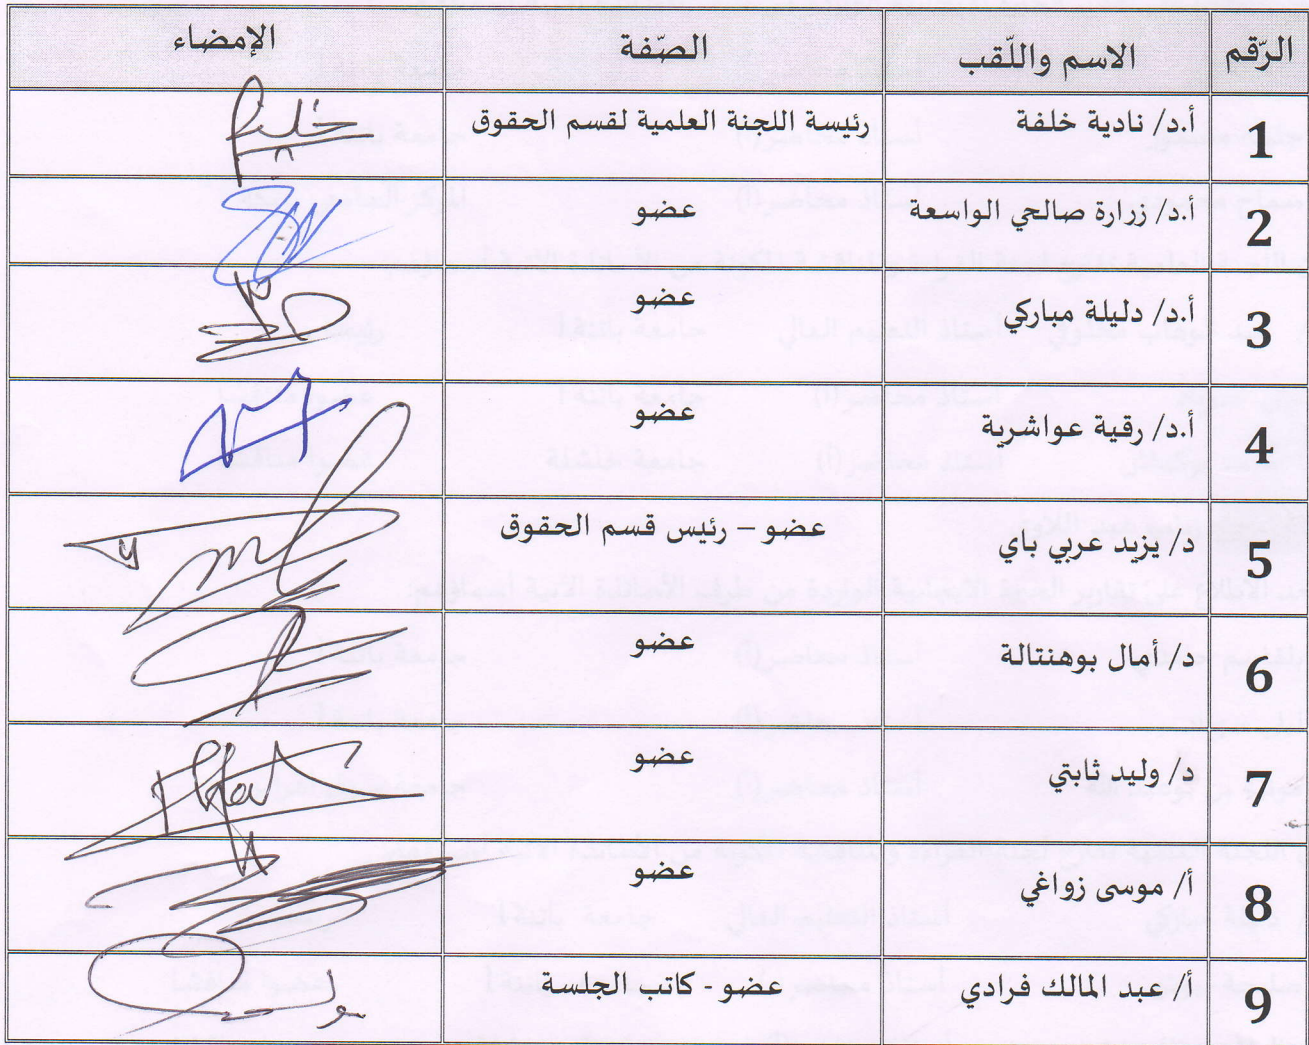 الرّقم الاسم واللّقب الصّفة الإمضاء
1 أ.د/ نادية خلفة رئيسة اللجنة العلمية لقسم الحقوق
2 أ.د/ زرارة صالحي الواسعة عضو
3 أ.د/ دليلة مباركي عضو
4 أ.د/ رقية عواشرية عضو
5 د/ يزيد عربي باي عضو – رئيس قسم الحقوق
6 د/ أمال بوهنتالة عضو
7 د/ وليد ثابتي عضو
8 أ/ موسى زواغي عضو
9 أ/ عبد المالك فرادي عضو - كاتب الجلسة